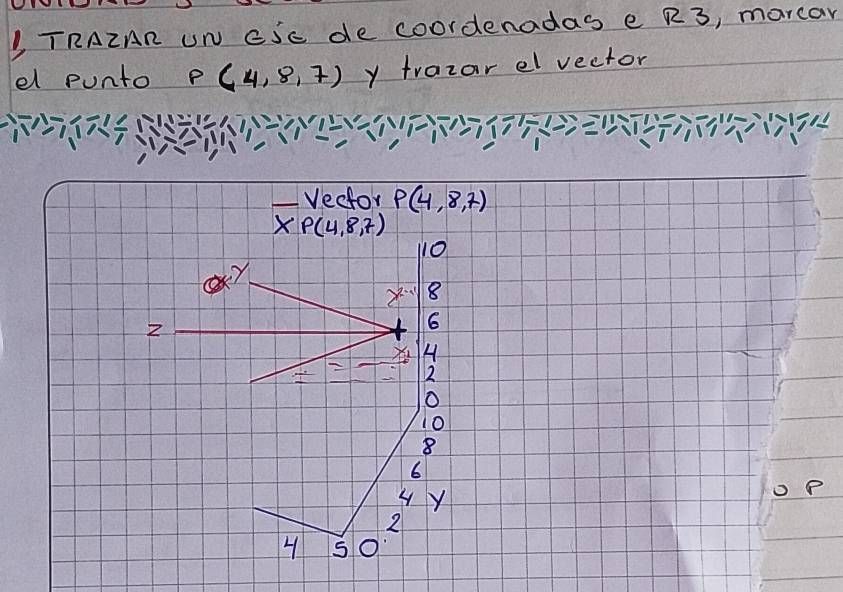 1, TRAZAR UN EJE de coordenadas e R3, marcar
el punto P (4,8,7) y trazar el vector
— Vector P(4,8,7)
X P(4,8,7)
10
Y
8
Z
6
4
2
0
10
8
6
4 Y
O P
2
4 5 0